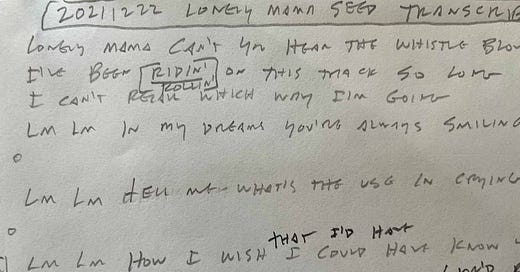 20211222 LONELY MAMA SEED TRANSCRI
LONELY MAMA CAN'T YOU HEAR THE WHISTLE BLOW
I'VE BEEN RIDIN' ON THIS TRACK SO LONG
ROLLIN'
I CAN'T RECALL WHICH WAY I'M GOING
LM LM IN MY DREAMS YOU'RE ALWAYS SMILING
LM LM TELL ME WHAT'S THE USE IN CRYING
THAT I'D HAVE
LM LM HOW I WISH I COULD HAVE KNOW